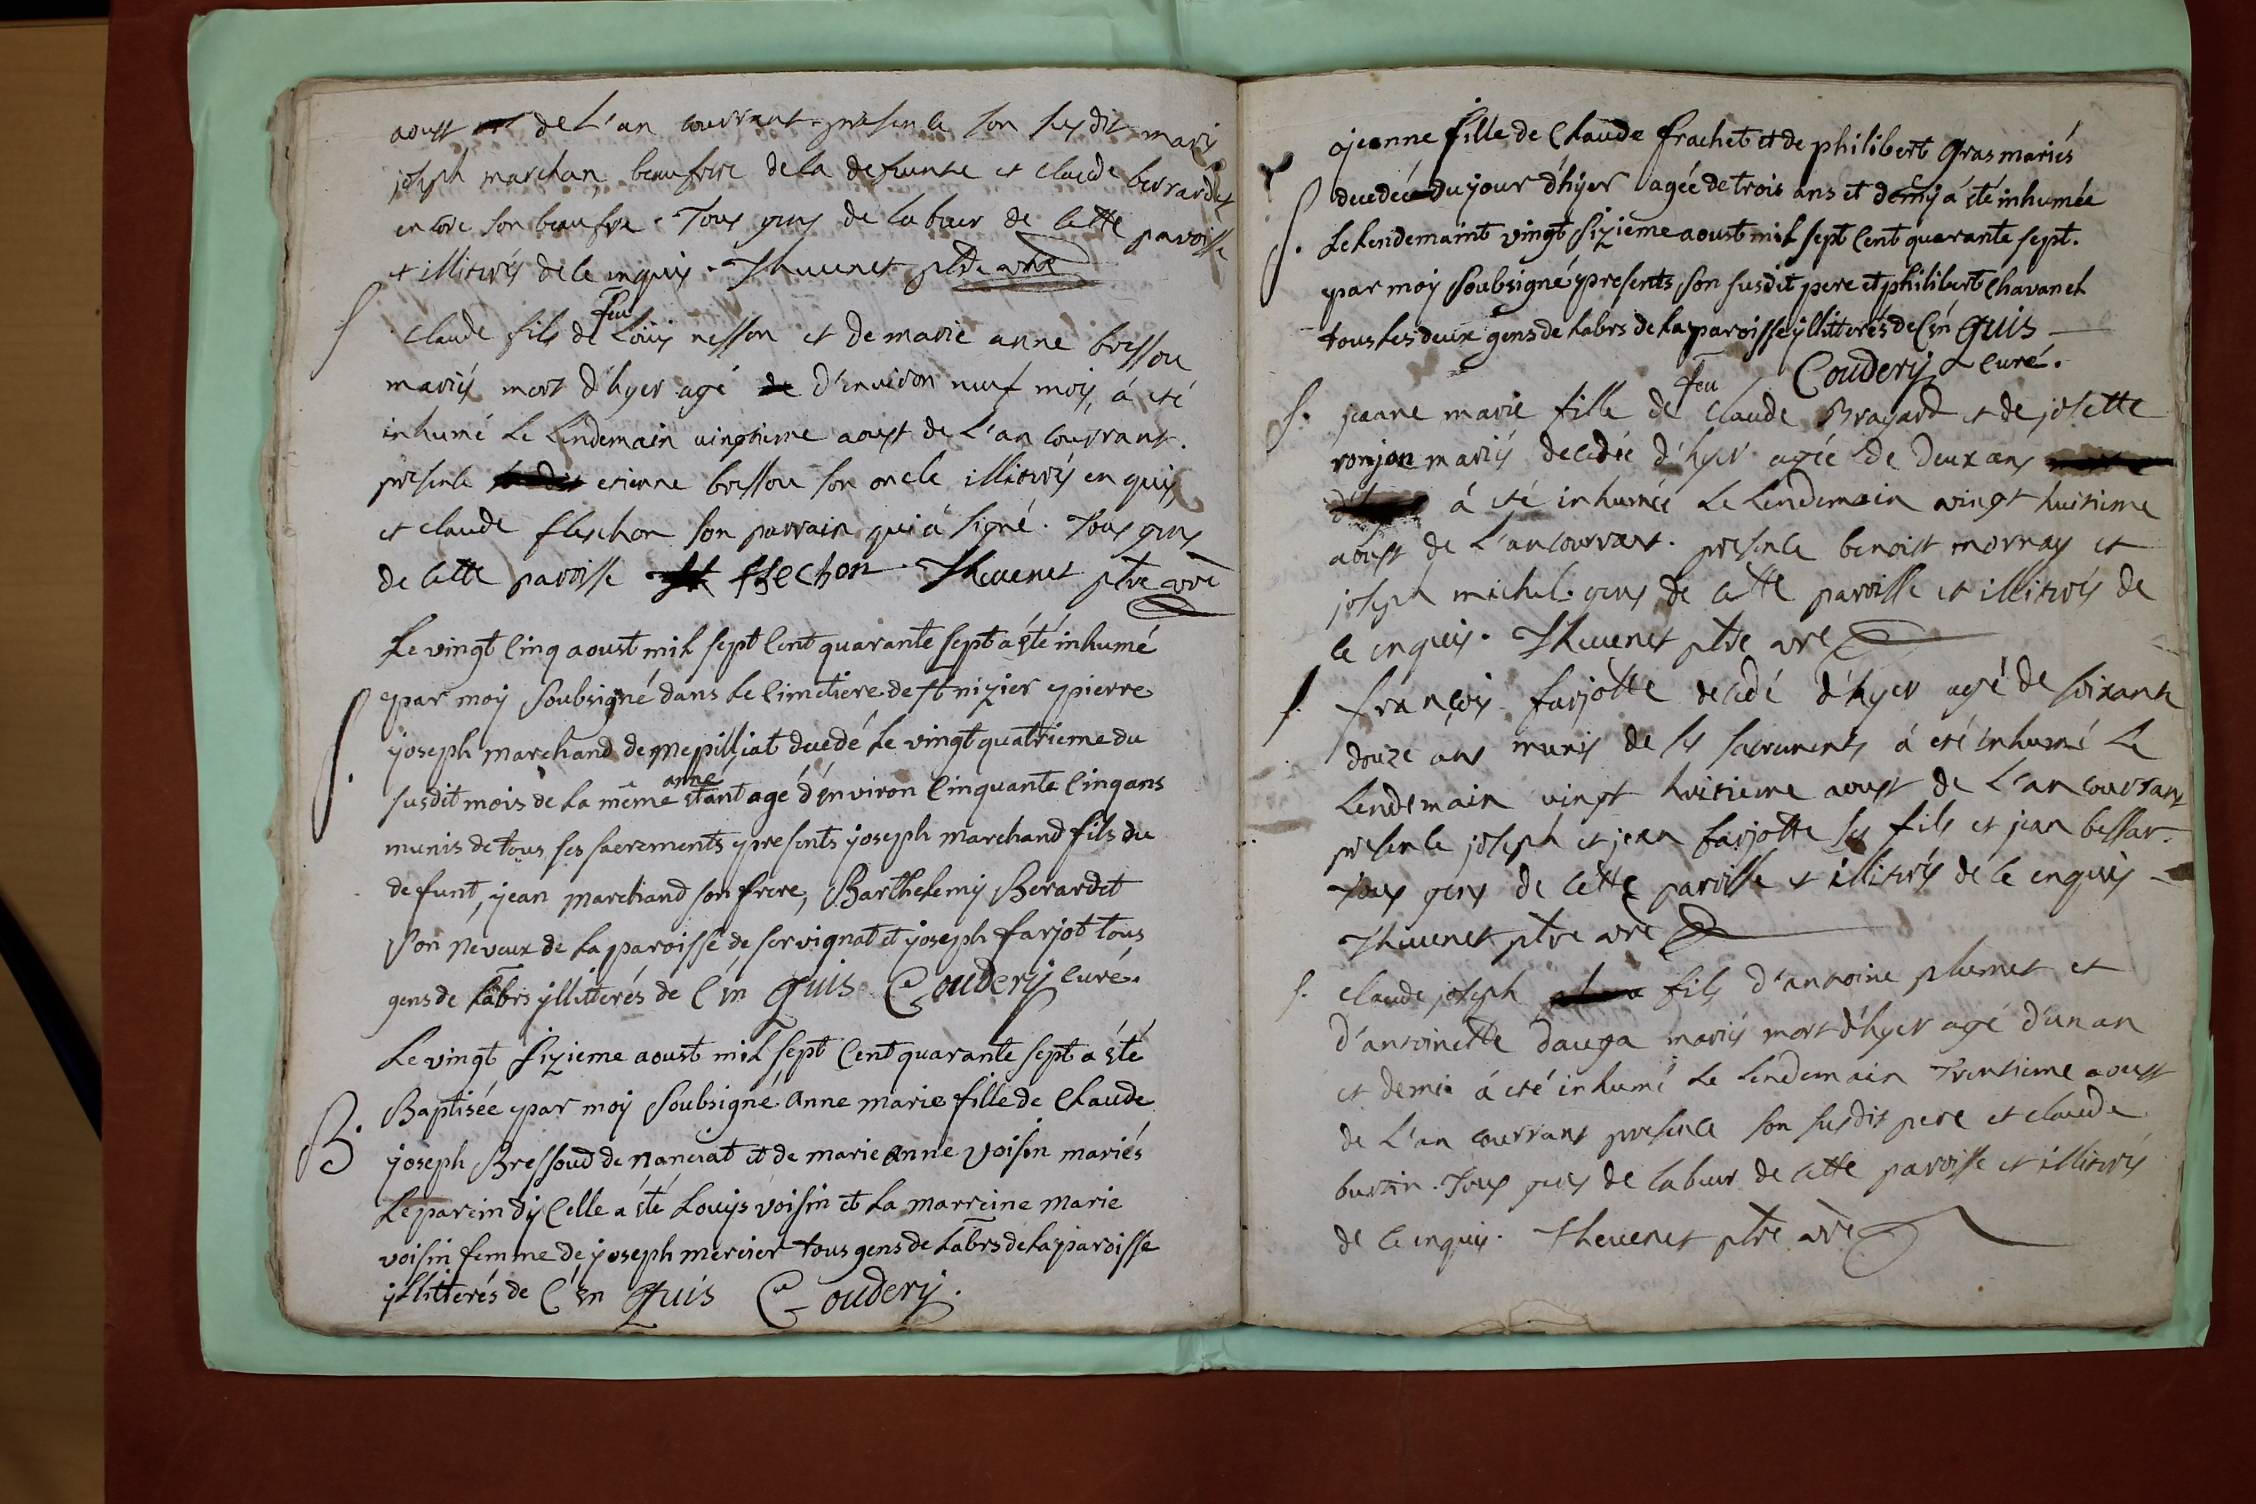 aoust de L'an courrant. presence son susdit mary
joseph marchan, beaufrere dela defunte et claude berrardet
encore son beaufre. Tous gens de labeur de cette paroisse
et illiterés de ce enquis. Thevenet ptre vre
S
claude fils de feu Loüis nesson et de marie anne bressou
mariés mort d'hyer agé d'environ neuf mois, á eté
inhumé Le Lendemain vingtieme aoust de L'an courrant.
presence etienne bressou son oncle illiterés enquis
et claude fléchon son parrain qui á signé. Tous gens
de cette paroisse flechon. Thevenet ptre vre
Le vingt cinq aoust mil sept Cent quarante sept a été inhumé
S.
par moÿ Soubsigné dans Le Cimetiere de st nizier pierre
joseph marchand de mepilliat decedé Le vingt quatrieme du
susdit mois de La même anne etant agé d'environ Cinquante Cinq ans
munis de tous ses sacrements presents joseph marchand fils du
defunt, jean marchand son frere, Barthelemÿ Berardet
Son neveux de La paroisse de servignat et joseph farjot tous
gens de Labrs ÿllitterés de C en Quis Coudery Curé.
Le vingt sizieme aoust mil sept Cent quarante sept a été
B.
Baptisée par moÿ Soubsigné Anne marie fille de Claude
joseph Bressoud de nanciat et de marie Anne Voisin mariés
Le parein d'ÿCelle a été Louÿs voisin et La marreine Marie
voisin femme de joseph mercier tous gens de Labrs de La paroisse
ÿllitterés de C en Quis Coudery.
S.
jeanne fille de Claude frachet et de philibert Gras mariés
decedée du jour d'hyer agée de trois ans et demÿ a été inhumée
Le Lendemaint vingt sizieme aoust mil sept Cent quarante sept.
par moÿ Soubsigné presents son susdit pere et philibert Chavanel
tous Les deux gens de Labrs de La paroisse ÿllitterés de C en Quis
Coudery Curé.
S. jeanne marie fille de feu Claude Brayard et de josette
ronjon mariés decedée d'hyer agée de deux ans
á eté inhumée Le Lendemain vingt huitieme
aoust de L'an courrant. presence benoist mornay et
joseph michel. gens de cette paroisse et illiterés de
ce enquis. Thevenet ptre vre
S. françois farjotte decedé d'hyer agé de soixante
douze ans munis de ses sacrements á eté inhumé Le
Lendemain vingt huitieme aoust de L'an courrant
presence joseph et jean farjotte ses fils et jean bessar.
tous gens de cette paroisse et illiterés de ce enquis
Thevenet ptre vre
S. claude joseph fils d'antoine plumet et
d'antoinette dauga mariés mort d'hyer agé d'un an
et demi á eté inhumé Le Lendemain trentieme aoust
de L'an courrant presence son susdit pere et claude
burtin. Tous gens de labeur de cette paroisse et illiterés
de ce enquis. Thevenet ptre vre